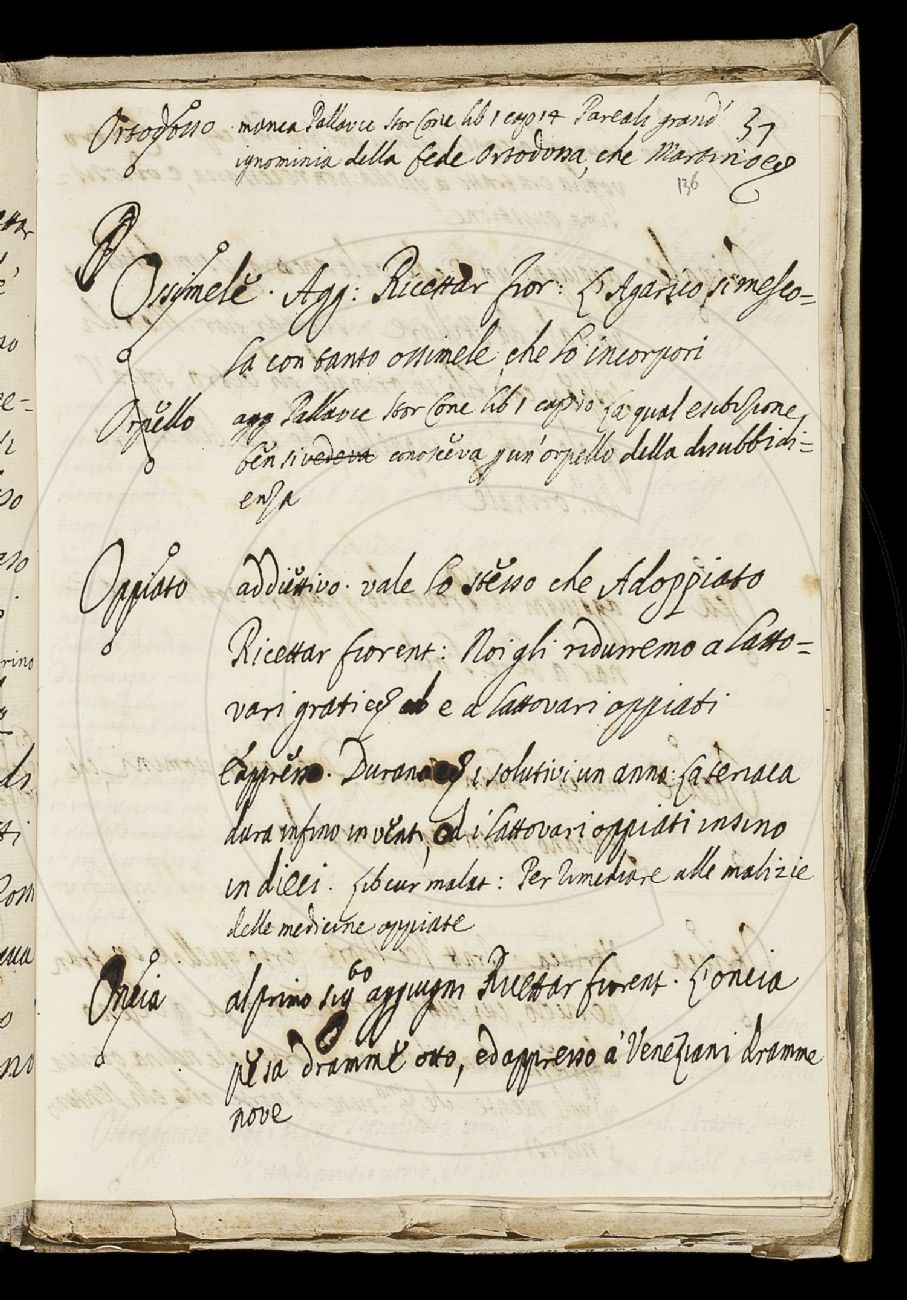 Ortodosso manca Pallavic Stor Conc lib 1 cap 14 Pareali grand' 37
ignominia della fede Ortodossa, che Martino ec
136
Ossimele. Agg: Ricettar fior: L'Agarico si mesco=
la con tanto ossimele che lo incorpori
Orpello agg Pallavic Stor Conc lib 1 cap 10 La qual esibizione
ben si vedeva conosceva p un' orpello della disubbidi=
enza
Oppiato addiettivo. vale lo stesso che Adoppiato
Ricettar fiorent: Noi gli ridurremo a latto=
vari grati ec e a lattovari oppiati
E appresso. Durano ec i solutivi un anno: La teriaca
dura infino in venti, ed i lattovari oppiati insino
in dieci. Lib cur malat: Per rimediare alle malizie
delle medicine oppiate
Oncia al primo sig.to aggiugni Ricettar fiorent. L'oncia
pesa dramme otto, ed appresso a' Veneziani dramme
nove